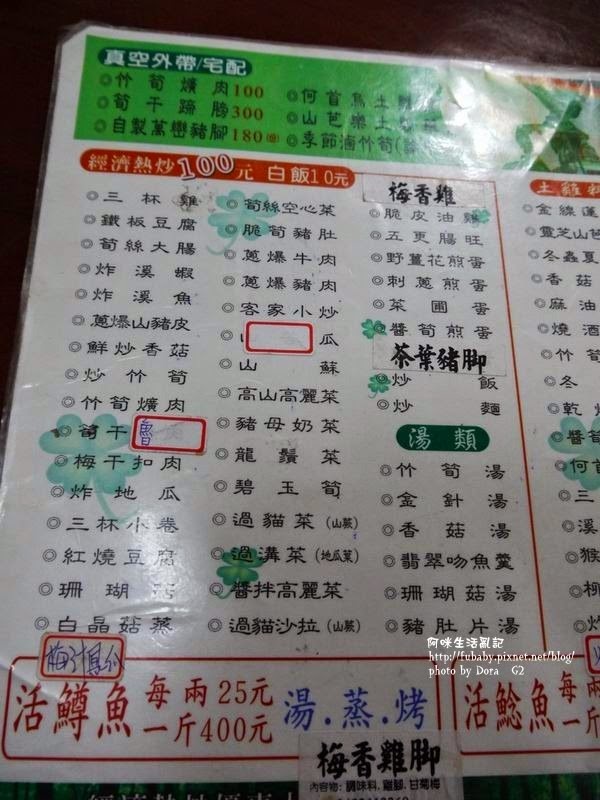 真空外帶/宅配
◎竹筍爌肉100
◎筍干蹄膀300
◎自製萬巒豬腳180
◎何首烏土雞
◎山芭樂土雞
◎季節滷竹筍
經濟熱炒100元 白飯10元
◎三杯雞
◎鐵板豆腐
◎筍絲大腸
◎炸溪蝦
◎炸溪魚
◎蔥爆山豬皮
◎鮮炒香菇
◎炒竹筍
◎竹筍爌肉
◎筍干魯肉
◎梅干扣肉
◎炸地瓜
◎三杯小卷
◎紅燒豆腐
◎珊瑚菇
◎白晶菇蒸
◎筍絲空心菜
◎脆筍豬肚
◎蔥爆牛肉
◎蔥爆豬肉
◎客家小炒
瓜
◎山蘇
◎高山高麗菜
◎豬母奶菜
◎龍鬚菜
◎碧玉筍
◎過貓菜(山蕨)
◎過溝菜(地瓜葉)
◎醬拌高麗菜
◎過貓沙拉(山蕨)
梅香雞
◎脆皮油雞
◎五更腸旺
◎野薑花煎蛋
◎刺蔥煎蛋
◎菜圃蛋
◎醬筍煎蛋
茶葉豬脚
◎炒飯
◎炒麵
湯類
◎竹筍湯
◎金針湯
◎香菇湯
◎翡翠吻魚羹
◎珊瑚菇湯
◎豬肚片湯
土雞
◎金線蓮
◎靈芝山芭
◎冬蟲夏
◎香菇
◎麻油
◎燒酒
◎竹筍
◎冬
◎乾
◎醬筍
◎何首
◎三
◎溪
◎猴
阿咪生活亂記
http://fubaby.pixnet.net/blog/
photo by Dora G2
活鱒魚 每兩25元
一斤400元
湯.蒸.烤
活鯰魚 每
一斤
梅香雞脚
內容物:調味料.雞腳.甘菊梅